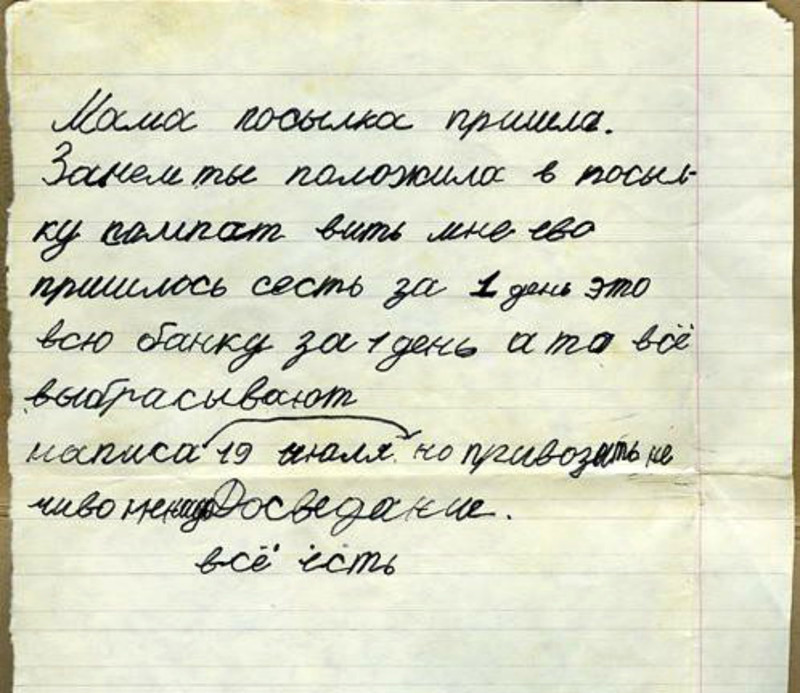 Мама посылка пришла.
Зачем ты положила в посыл-
ку компат вить мне ево
пришлось сесть за 1 день это
всю банку за 1 день а то всё
выбрасывают
написа 19 июля но привозить не
чиво не Досведание.
всё есть